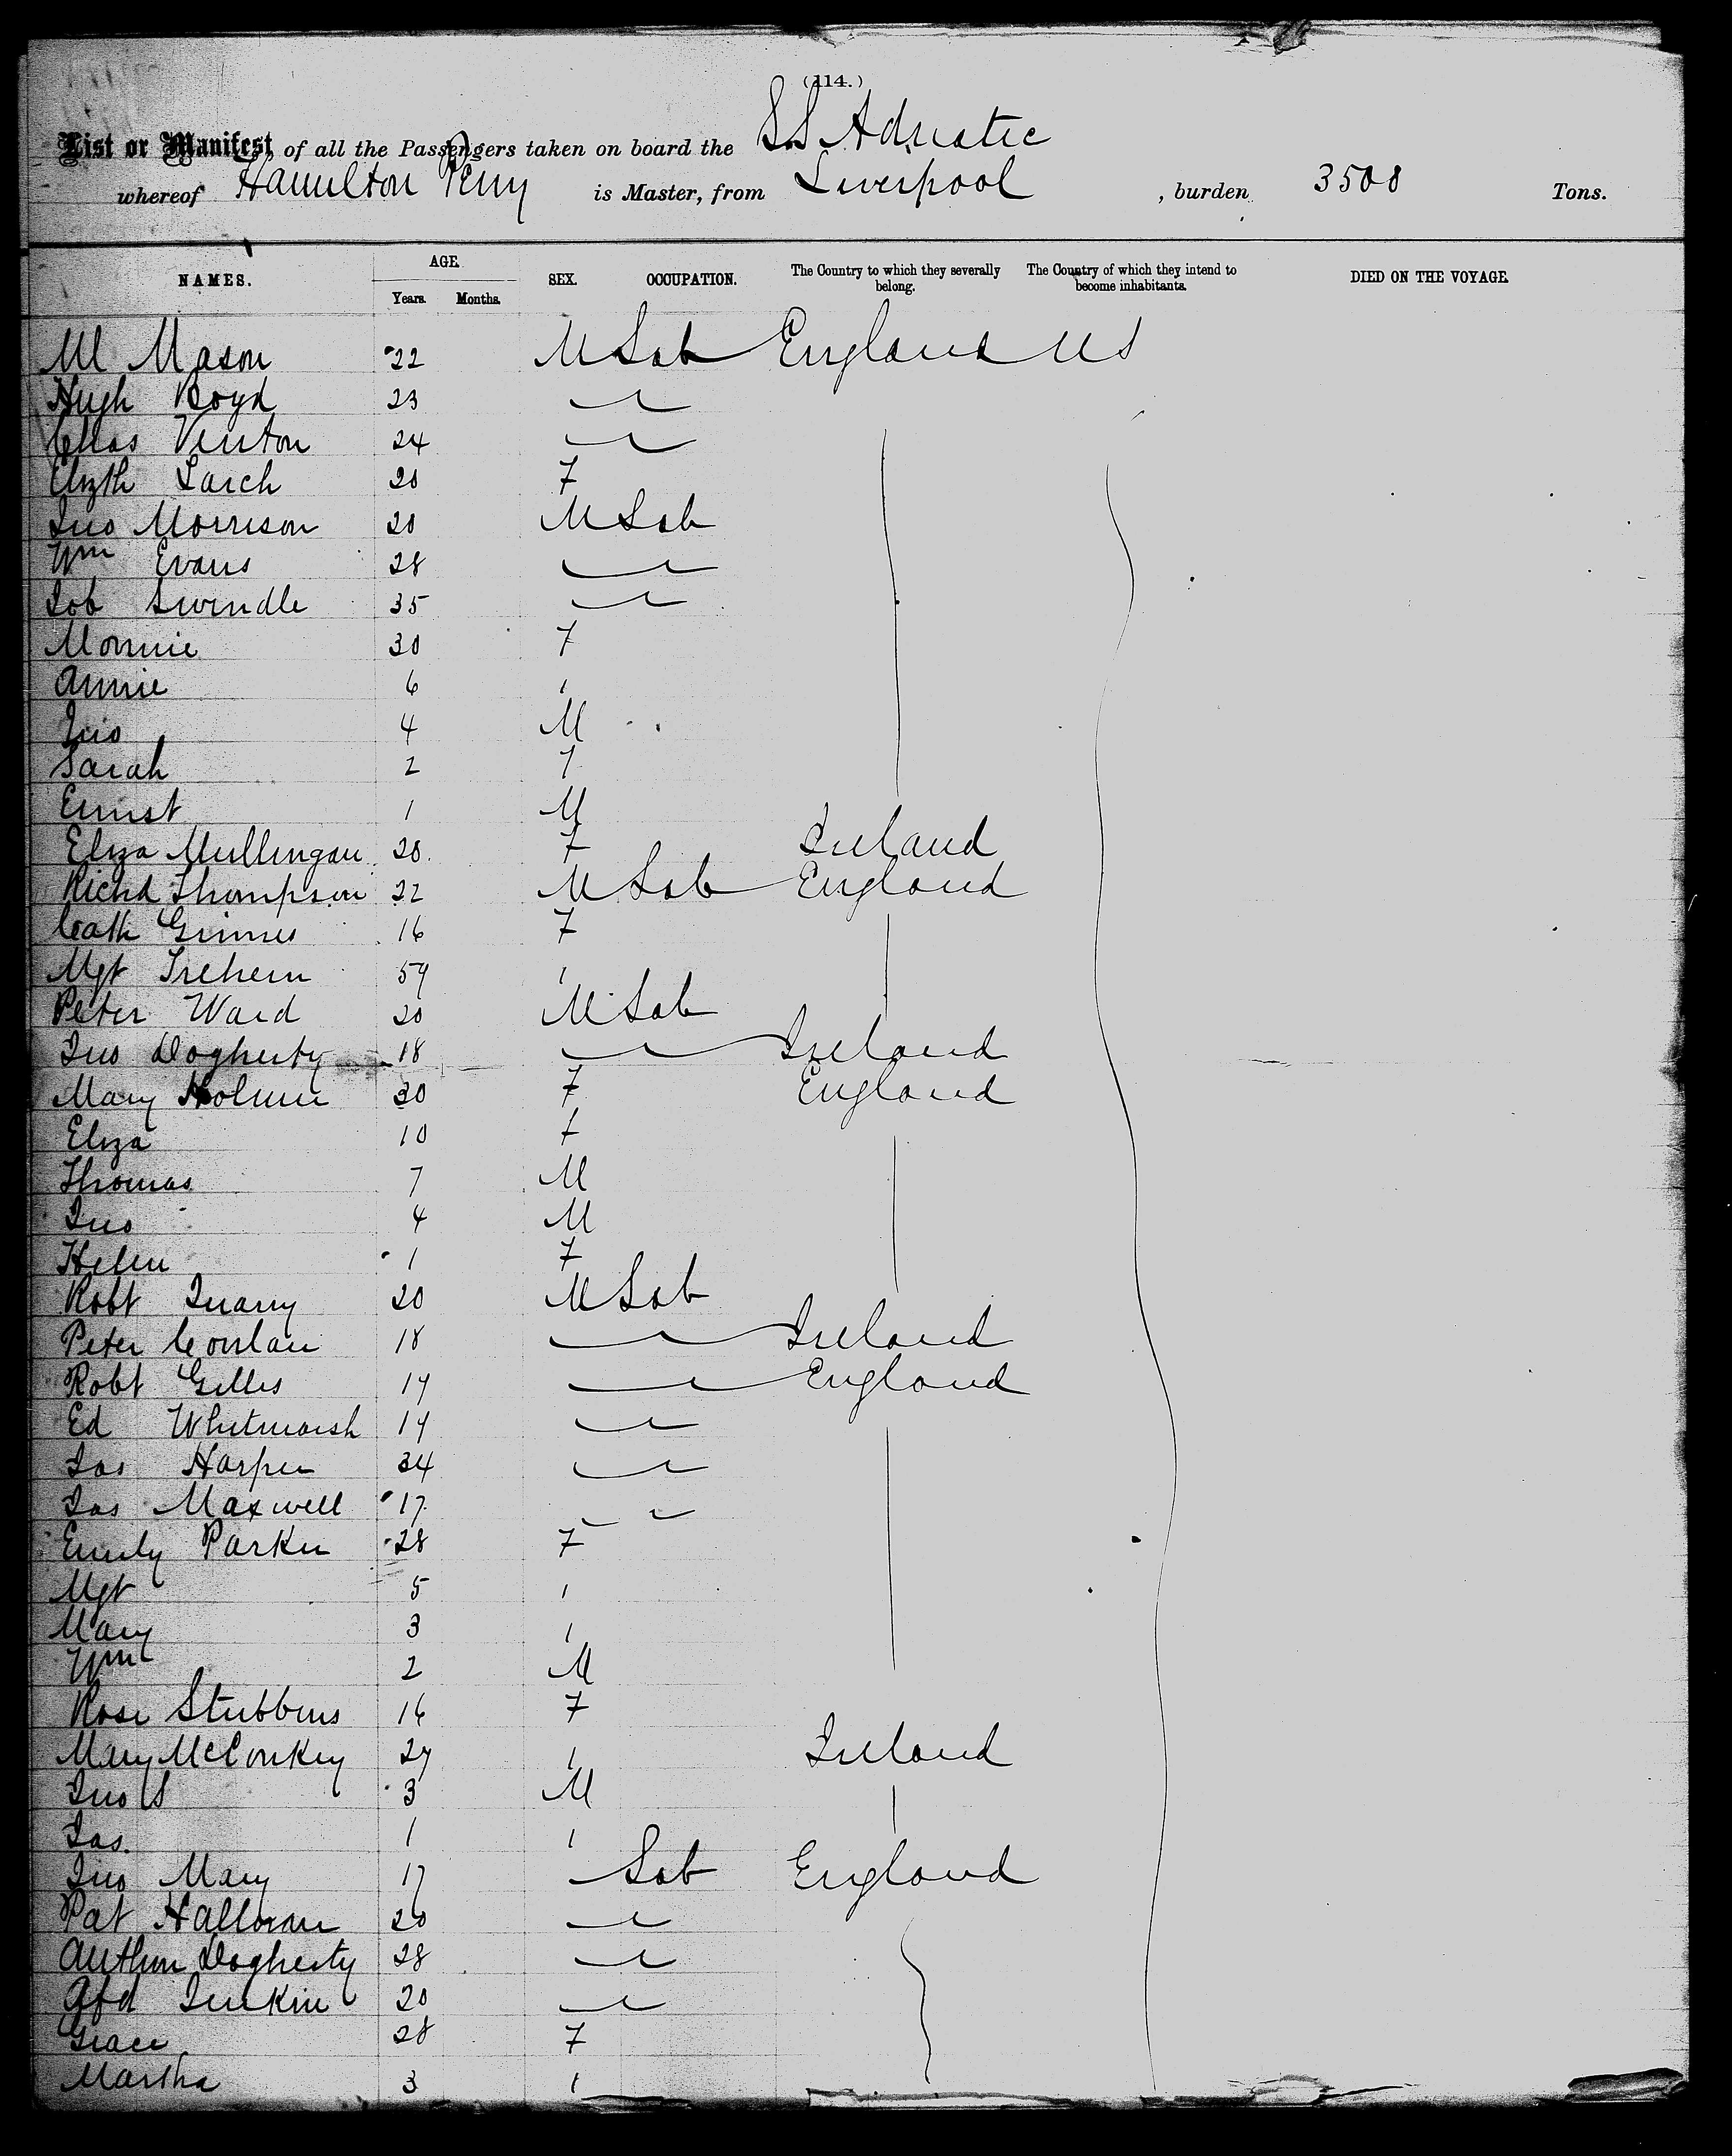 (114.)
List or Manifest of all the Passengers taken on board the SS Adriatic
whereof Hamilton Perry is Master, from Liverpool, burden 3500 Tons.
NAMES. AGE. SEX. OCCUPATION. The Country to which they severally belong. The Country of which they intend to become inhabitants. DIED ON THE VOYAGE.
Years. Months.
M Mason 22 M Lab England US
Hugh Boyd 23
Chas Venton 24
Elizth Larch 20 F
Jno Morrison 20 M Lab
Wm Evans 28
Job Swindle 35
30 F
Annie 6
Jno 4 M
Sarah 2 F
Ernst 1 M
Eliza Mullingan 20 F Ireland
Richd Thompson 22 M Lab England
Cath Grimes 16 F
Mgt Trehern
Peter Ward 20 M Lab
Jno Dogherty 18 Ireland
Mary Holmn 30 F England
Eliza 10 F
Thomas 7 M
Jno 4 M
Helen 1 F
Robt 20 M Lab
Peter Conlan 18 Ireland
Robt Gilles 19 England
Ed Whitmarsh 19
Jas Harper 34
Jas Maxwell 17
Emily Parker 28 F
Mgt 5
Mary 3
Wm 2 M
Rose Stubbins 16 F
Mary McConkey 29 Ireland
Jno S 3 M
Jas. 1
Jno Mary 17 Lab England
Pat Halloran 20
Arthur Dogherty 28
Afd Jenkin 20
Grace 28 F
Martha 3